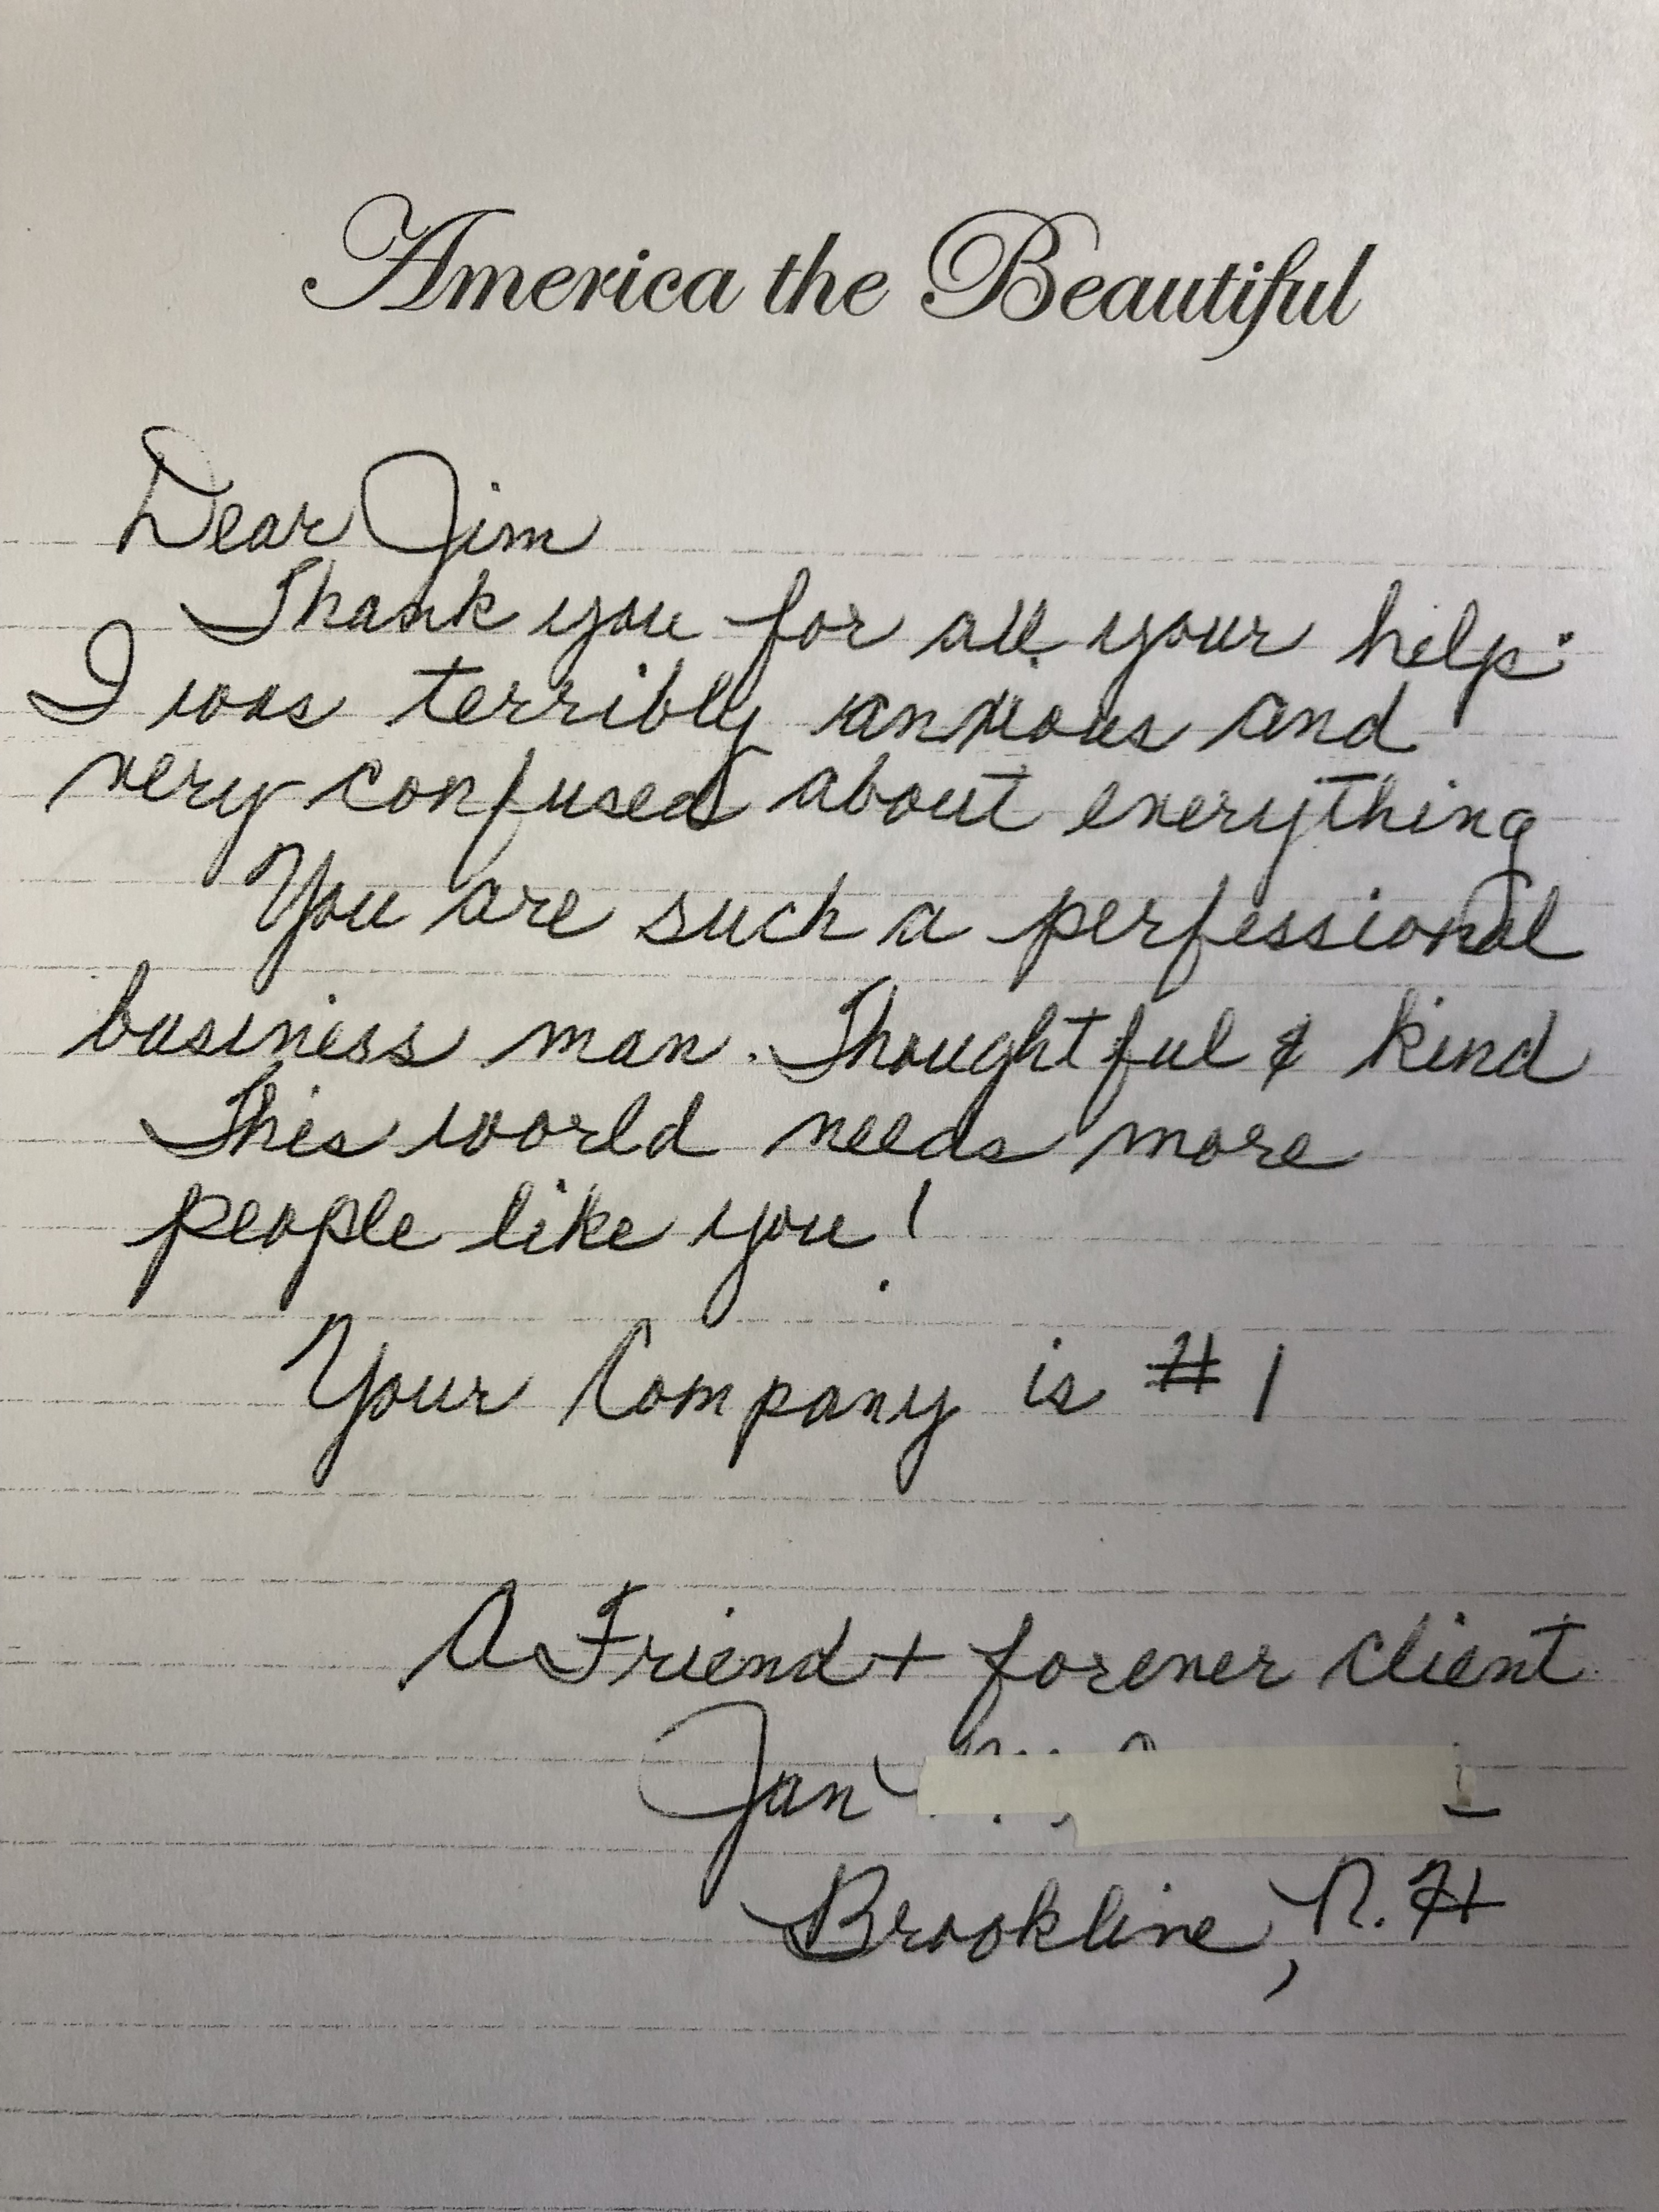 America the Beautiful
Dear Jim
Thank you for all your help.
I was terribly anxious and
very confused about everything
You are such a perfessional
business man. Thoughtful & kind
This world needs more
people like you!
Your Company is # 1
A Friend + forever client
Jan
Brookline, N.H